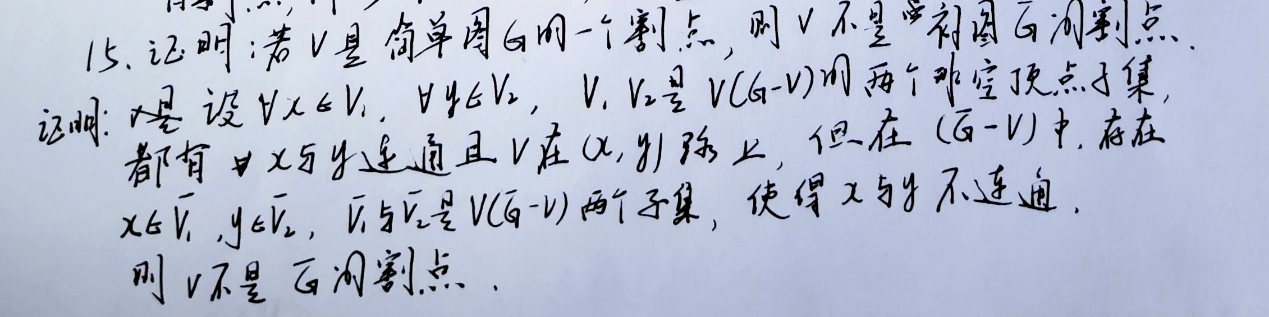 15. 证明:若V是简单图G的一个割点,则V不是补图G̅的割点.
证明: 设∀x∈V₁, ∀y∈V₂, V₁ V₂是V(G-V)的两个非空顶点子集,
都有 x与y连通且V在(x,y)路上,但在(G̅-V)中,存在
x∈V̅₁,y∈V̅₂, V̅₁与V̅₂是V(G̅-V)两个子集,使得x与y不连通.
则V不是G̅的割点.